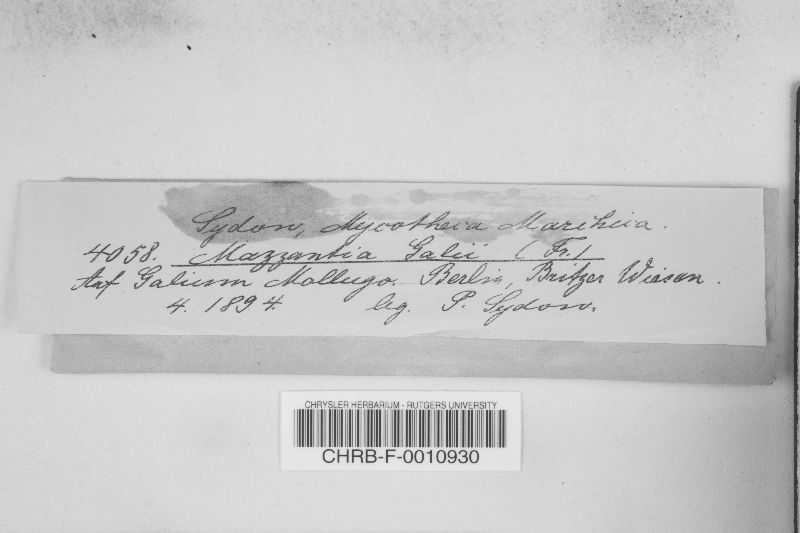 Sydow, Mycotheca Marchica.
4058. Mazzantia Galii (Fr.)
Auf Galium Mollugo. Berlin, Britzer Wiesen.
4. 1894. leg. P. Sydow.
CHRYSLER HERBARIUM - RUTGERS UNIVERSITY
CHRB-F-0010930